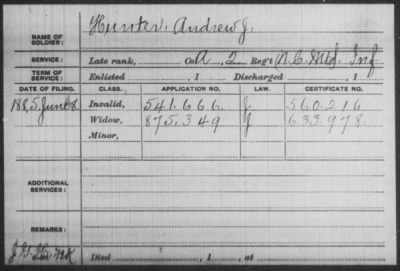 NAME OF SOLDIER: Hunter, Andrew J.
SERVICE: Late rank, Co. A, 2 Reg't N.C. Mtd. Inf.
TERM OF SERVICE: Enlisted , 1 Discharged , 1
DATE OF FILING. CLASS. APPLICATION NO. LAW. CERTIFICATE NO.
1885, June 8. Invalid, 541.666 J. 560.216
Widow, 875.349 J. 633.978.
Minor,
ADDITIONAL SERVICES:
REMARKS:
Died , 1 , at